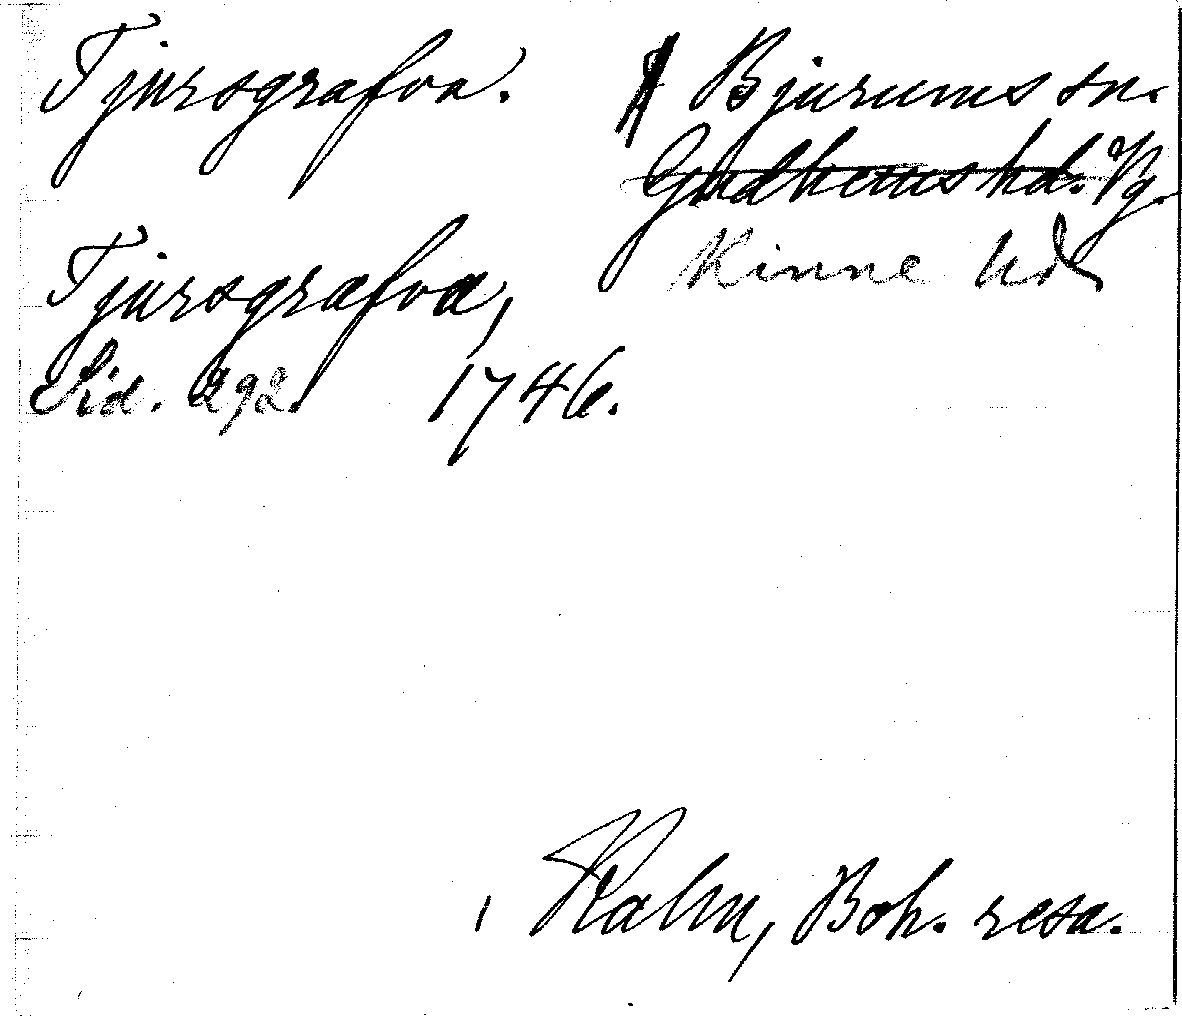 Tjursgrafva. Bjurums sn.
Gudhems hd. Vg.
Kinne hd
Tjursgrafva,
Sid. 292. 1746.
Kalm, Boh. resa.